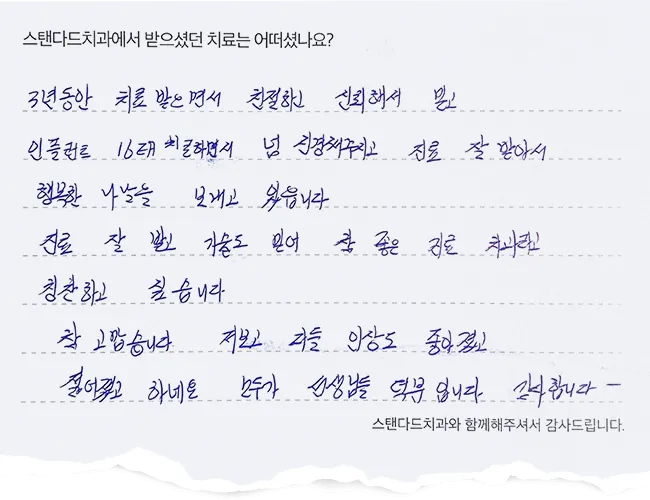 스탠다드치과에서 받으셨던 치료는 어떠셨나요?
3년동안 치료 받으면서 친절하고 신뢰해서 믿고
인플런트 16대 치료하면서 넘 신경써주시고 진료 잘 받아서
행복한 나날들 보내고 있읍니다
진료 잘 받고 기술도 믿어 참 좋은 치료 치과라고
칭찬하고 싶습니다
참 고맙습니다 저보고 다들 인상도 좋아졌고
젊어졌고 하네요 모두가 선생님들 덕분입니다 감사합니다 —
스탠다드치과와 함께해주셔서 감사드립니다.